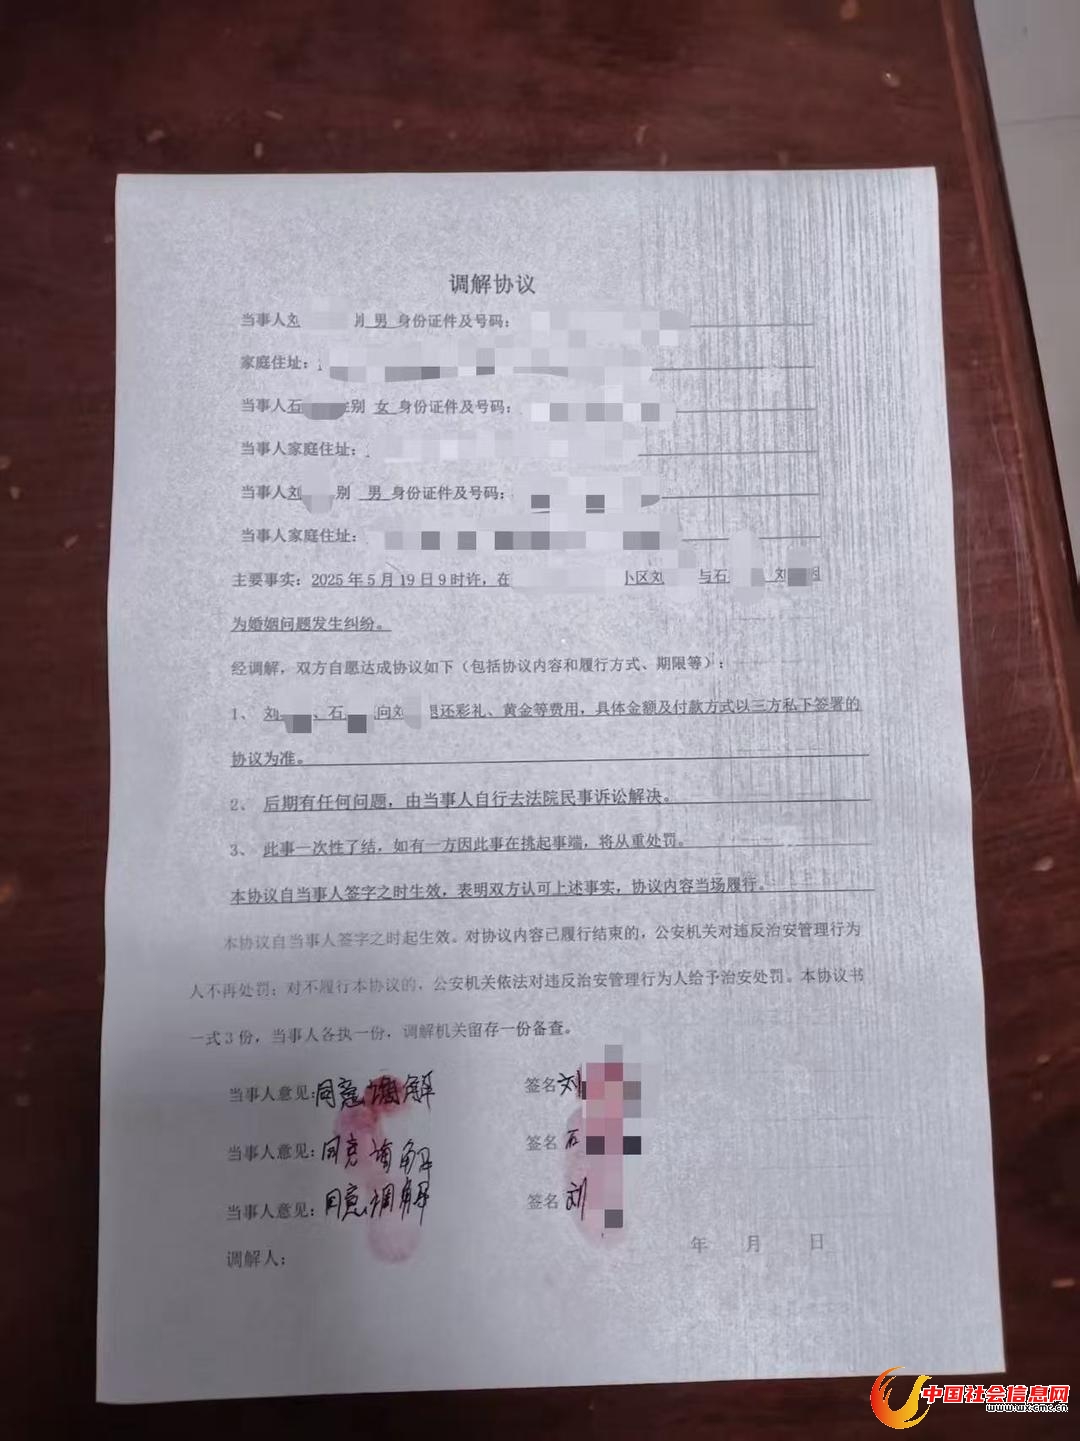 调解协议
当事人刘 男 身份证件及号码：
家庭住址：
当事人石 别 女 身份证件及号码：
当事人家庭住址：
当事人刘 别 男 身份证件及号码：
当事人家庭住址：
主要事实：2025年5月19日9时许，在 小区刘 与石 、刘 因
为婚姻问题发生纠纷。
经调解，双方自愿达成协议如下（包括协议内容和履行方式、期限等）：
1、 刘 、石 向刘 退还彩礼、黄金等费用，具体金额及付款方式以三方私下签署的
协议为准。
2、 后期有任何问题，由当事人自行去法院民事诉讼解决。
3、 此事一次性了结，如有一方因此事在挑起事端，将从重处罚。
本协议自当事人签字之时生效，表明双方认可上述事实，协议内容当场履行。
本协议自当事人签字之时起生效。对协议内容已履行结束的，公安机关对违反治安管理行为
人不再处罚；对不履行本协议的，公安机关依法对违反治安管理行为人给予治安处罚。本协议书
一式3份，当事人各执一份，调解机关留存一份备查。
当事人意见：同意调解 签名 刘
当事人意见：同意调解 签名 石
当事人意见：同意调解 签名 刘
年 月 日
调解人：
中国社会信息网
www.wxcmc.cn